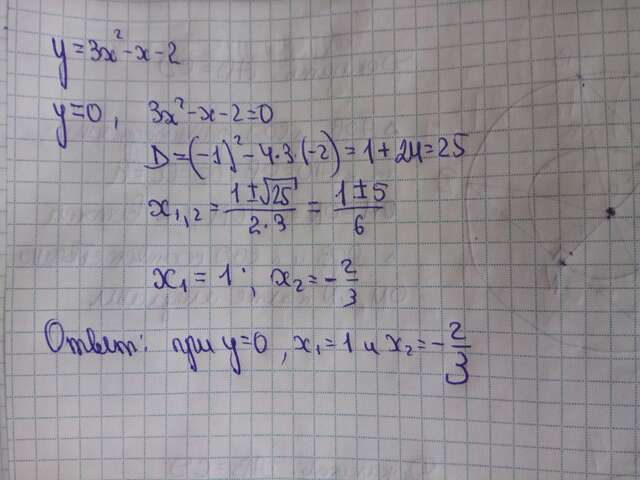 y=3x²-x-2
y=0, 3x²-x-2=0
D=(-1)²-4·3·(-2)=1+24=25
x₁,₂=(1±√25)/(2·3)=(1±5)/6
x₁=1; x₂=-2/3
Ответ: при y=0, x₁=1 и x₂=-2/3